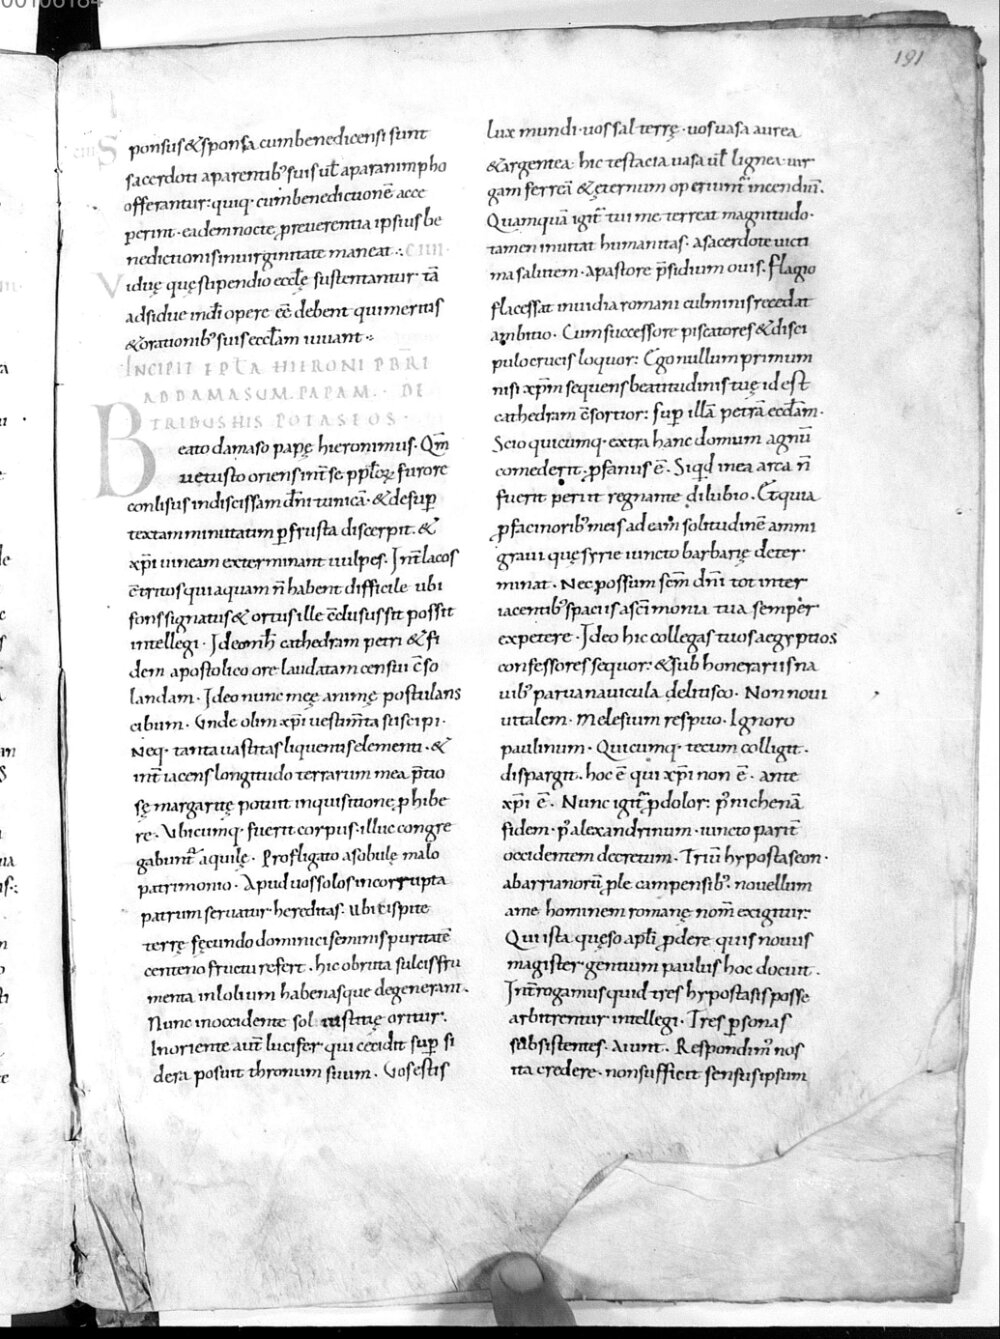 191
Sponsus & sponsa cum benedicensi sunt
sacerdoti aparentib; suis ul̄ aparanimpho
offerantur: quiq· cum benedictionē acce
perint· eadem nocte p̱reuerentia ipsius be
nedictionis inuirginitate maneat ·:
Viduę quę stipendio ecclę sustentantur tā
adsidue indi opere eē debent qui meritis
& orationib; suis ecclam iuuant ·:
INCIPIT EPTA HIERONI PBRI
AD DAMASUM PAPAM · DE
TRIBUS HIS POTASEOS ·
Beato damaso papę hieronimus· Qm̄
uetusto oriens int̄ se ppl̄oꝝ furore
conlisus indiscissam dn̄i tunicā· & desup̱
textam minutatim p̱frusta discerpit· &
xp̄i uineam exterminant uulpes· Int̄ lacos
c̄tritos qui aquam n̄ habent difficile ubi
fons signatus & ortus ille c̄clusus sit possit
intellegi· Ideo mh̄ cathedram petri & fi
dem apostolico ore laudatam censui c̄so
landam· Ideo nunc meę animę postulans
cibum· Unde olim xp̄i uestim̄ta suscipi·
Neq· tanta uastitas liquentis elementi· &
int̄ iacens longitudo terrarum mea p̄tio
sę margaritę potuit inquisitione p̱hibe
re· Ubicumq· fuerit corpus· illuc congre
gabunt̄ aquilę· Profligato asobule malo
patrimonio· Apud uos solos incorrupta
patrum seruatur hereditas· ubi cispite
terrę fęcundo dominici seminis puritatē
centeno fructu refert· hic obruta sulcis fru
menta in lolium habenasque degenerant·
Nunc inoccidente sol iustitię oritur·
In oriente aut̄ lucifer qui cecidit sup̱ si
dera posuit thronum suum· Uos estis
lux mundi· uos sal terrę· uos uasa aurea
& argentea· hic testacia uasa ul̄ lignea uir
gam ferreā & ęternum operiunt̄ incendiū·
Quamquā igit̄ tui me terreat magnitudo·
tamen inuitat humanitas· a sacerdote uicti
ma salutem· a pastore p̄sidium ouis· flagio
flacessat inuidia romani culminis recedat
ambitio· Cum successore piscatores & disci
pulo crucis loquor: Ego nullum primum
nisi xp̄m sequens beatitudinis tuę id est
cathedram c̄sortior: sup̱ illā petrā eccl̄am·
Scio quicumq· extra hanc domum agnū
comederit· p̱fanus ē· Siqd̄ inea arca n̄
fuerit periit regnante dilubio· Et quia
p̱ facinorib; meis ad eam solitudinē ammi
graui quę syrie iuncto barbarię deter·
minat· Nec possum sem̄ dn̄i tot inter
iacentib; spaciis ascimonia tua semper
expetere· Ideo hic collegas tuos aegyptios
confessores sequor: & sub honerariis na
uib; parua nauicula delitisco· Non noui
uitalem· Melesium respuo· Ignoro
paulinum· Quicumq· tecum colligit·
dispargit· hoc ē qui xp̄i non ē· ante
xp̄i ē· Nunc igit̄ p̱dolor: p̄ nichenā
fidem· p̄ alexandrinum· iuncto parit̄
occidentem decretum· Triū hypostaseon·
abarrianorū ple campensib; nouellum
ame hominem romanę nom̄ exigitur:
Qui ista queso apl̄i p̱dere quis nouus
magister gentium paulus hoc docuit·
Int̄rogamus quid tres hypostasis posse
arbitrentur intellegi· Tres p̱sonas
subsistentes· Aiunt· Respondim; nos
ita credere· non sufficit sensus ipsum